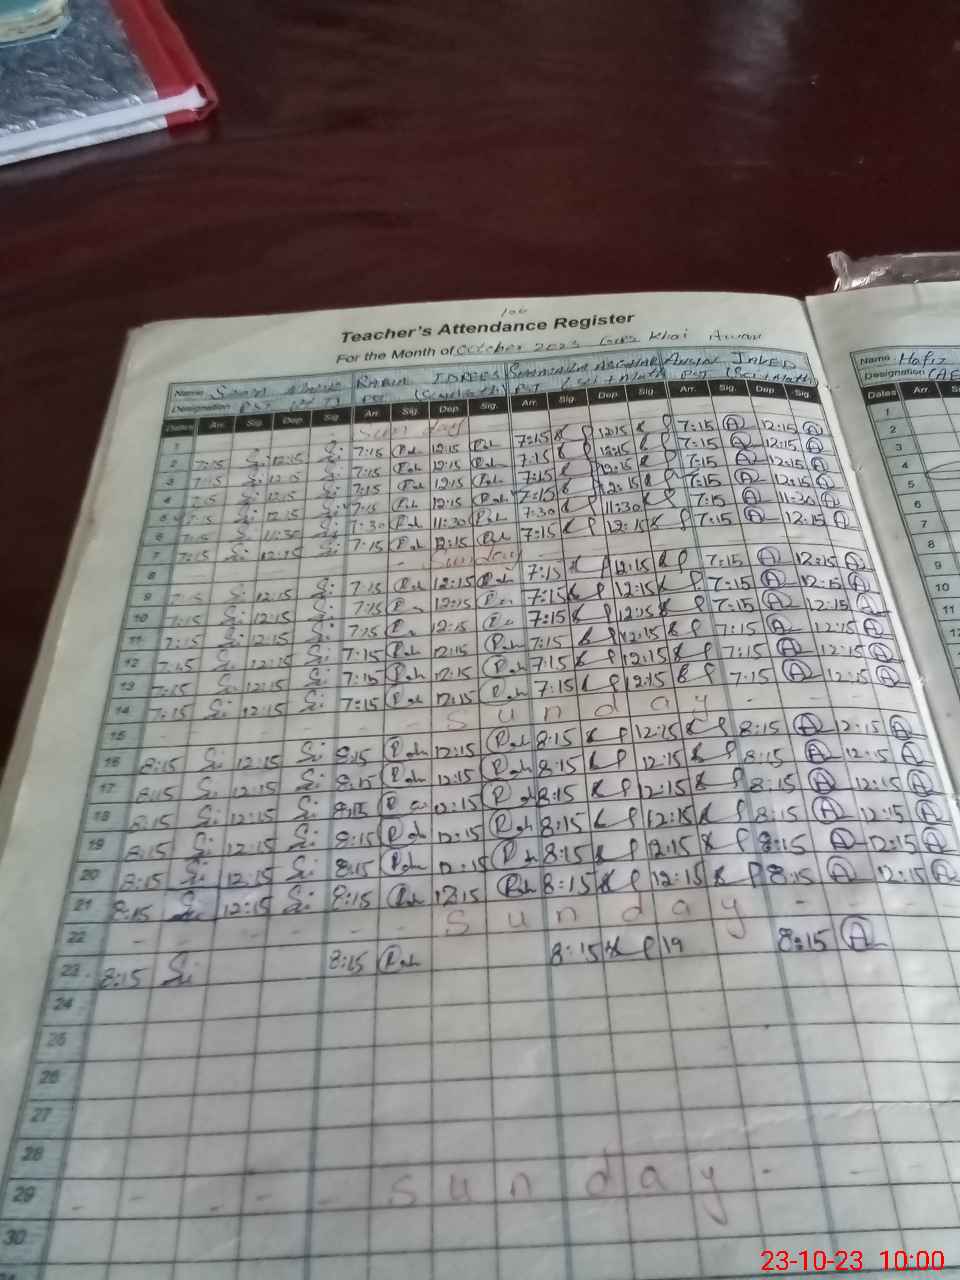 Teacher's Attendance Register
For the Month of October 2023 GGPS Khai Awan
Name RABIA IDREES JAVED
Designation PST PST (Sci+Math) PST (Sci+Math)
Dates Arr. Sig. Dep. Sig. Arr. Sig. Dep. Sig. Arr. Sig. Dep. Sig. Arr. Sig. Dep. Sig.
1 Sunday
2 7:15 12:15 7:15 Rah 12:15 Rah 7:15 12:15 7:15 A 12:15 A
3 7:15 12:15 7:15 Rah 12:15 Rah 7:15 12:15 7:15 A 12:15 A
4 7:15 12:15 7:15 Rah 12:15 Rah 7:15 12:15 7:15 A 12:15 A
5 7:15 12:15 7:15 Rah 12:15 Rah 7:15 12:15 7:15 A 12:15 A
6 7:15 11:30 7:30 Rah 11:30 Rah 7:30 11:30 7:15 A 11:30 A
7 7:15 12:15 7:15 Rah 12:15 Rah 7:15 12:15 7:15 A 12:15 A
8 Sunday
9 7:15 12:15 7:15 Rah 12:15 Rah 7:15 12:15 7:15 A 12:15 A
10 7:15 12:15 7:15 12:15 7:15 12:15 7:15 A 12:15 A
11 7:15 12:15 7:15 12:15 7:15 12:15 7:15 A 12:15 A
12 7:15 12:15 7:15 Rah 12:15 Rah 7:15 12:15 7:15 A 12:15 A
13 7:15 12:15 7:15 Rah 12:15 Rah 7:15 12:15 7:15 A 12:15 A
14 7:15 12:15 7:15 Rah 12:15 Rah 7:15 12:15 7:15 A 12:15 A
15 - - - - - - Sunday - - -
16 8:15 Si 12:15 Si 8:15 Rah 12:15 Rah 8:15 12:15 8:15 A 12:15 A
17 8:15 Si 12:15 Si 8:15 Rah 12:15 Rah 8:15 12:15 8:15 A 12:15 A
18 8:15 Si 12:15 Si 8:15 Rah 12:15 Rah 8:15 12:15 8:15 A 12:15 A
19 8:15 Si 12:15 Si 8:15 Rah 12:15 Rah 8:15 12:15 8:15 A 12:15 A
20 8:15 Si 12:15 Si 8:15 Rah 12:15 Rah 8:15 12:15 8:15 A 12:15 A
21 8:15 Si 12:15 Si 8:15 Rah 12:15 Rah 8:15 12:15 8:15 A 12:15 A
22 - - - - - - Sunday - - -
23 8:15 Si 8:15 Rah 8:15 8:15 A
24
25
26
27
28
29 - - - - - Sunday - - -
30
Name Hafiz
Designation
Dates Arr.
1
2
3
4
5
6
7
8
9
10
11
23-10-23 10:00